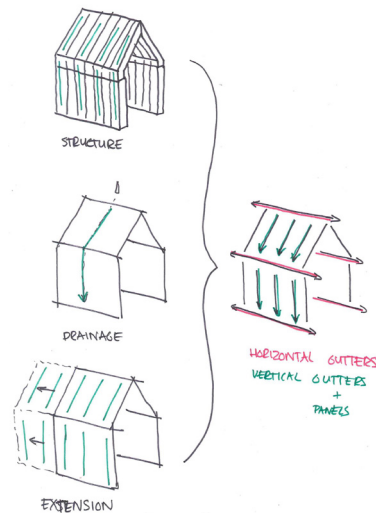 STRUCTURE
DRAINAGE
EXTENSION
HORIZONTAL GUTTERS
VERTICAL GUTTERS
+
PANELS